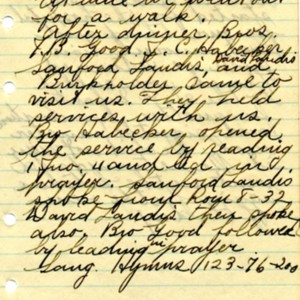 for a walk.
After dinner, Bros.
Good, C. Habecker
Sanford Landis, David Landis and
Burkholder came to
visit us. They held
services with us.
Bro Habecker opened
the service by reading
1 Jno. 4 and led in
prayer. Sanford Landis
spoke from Rom 8-32
David Landis then spoke
also. Bro Good followed
by leading in prayer
Sang. Hymns 123-76-200